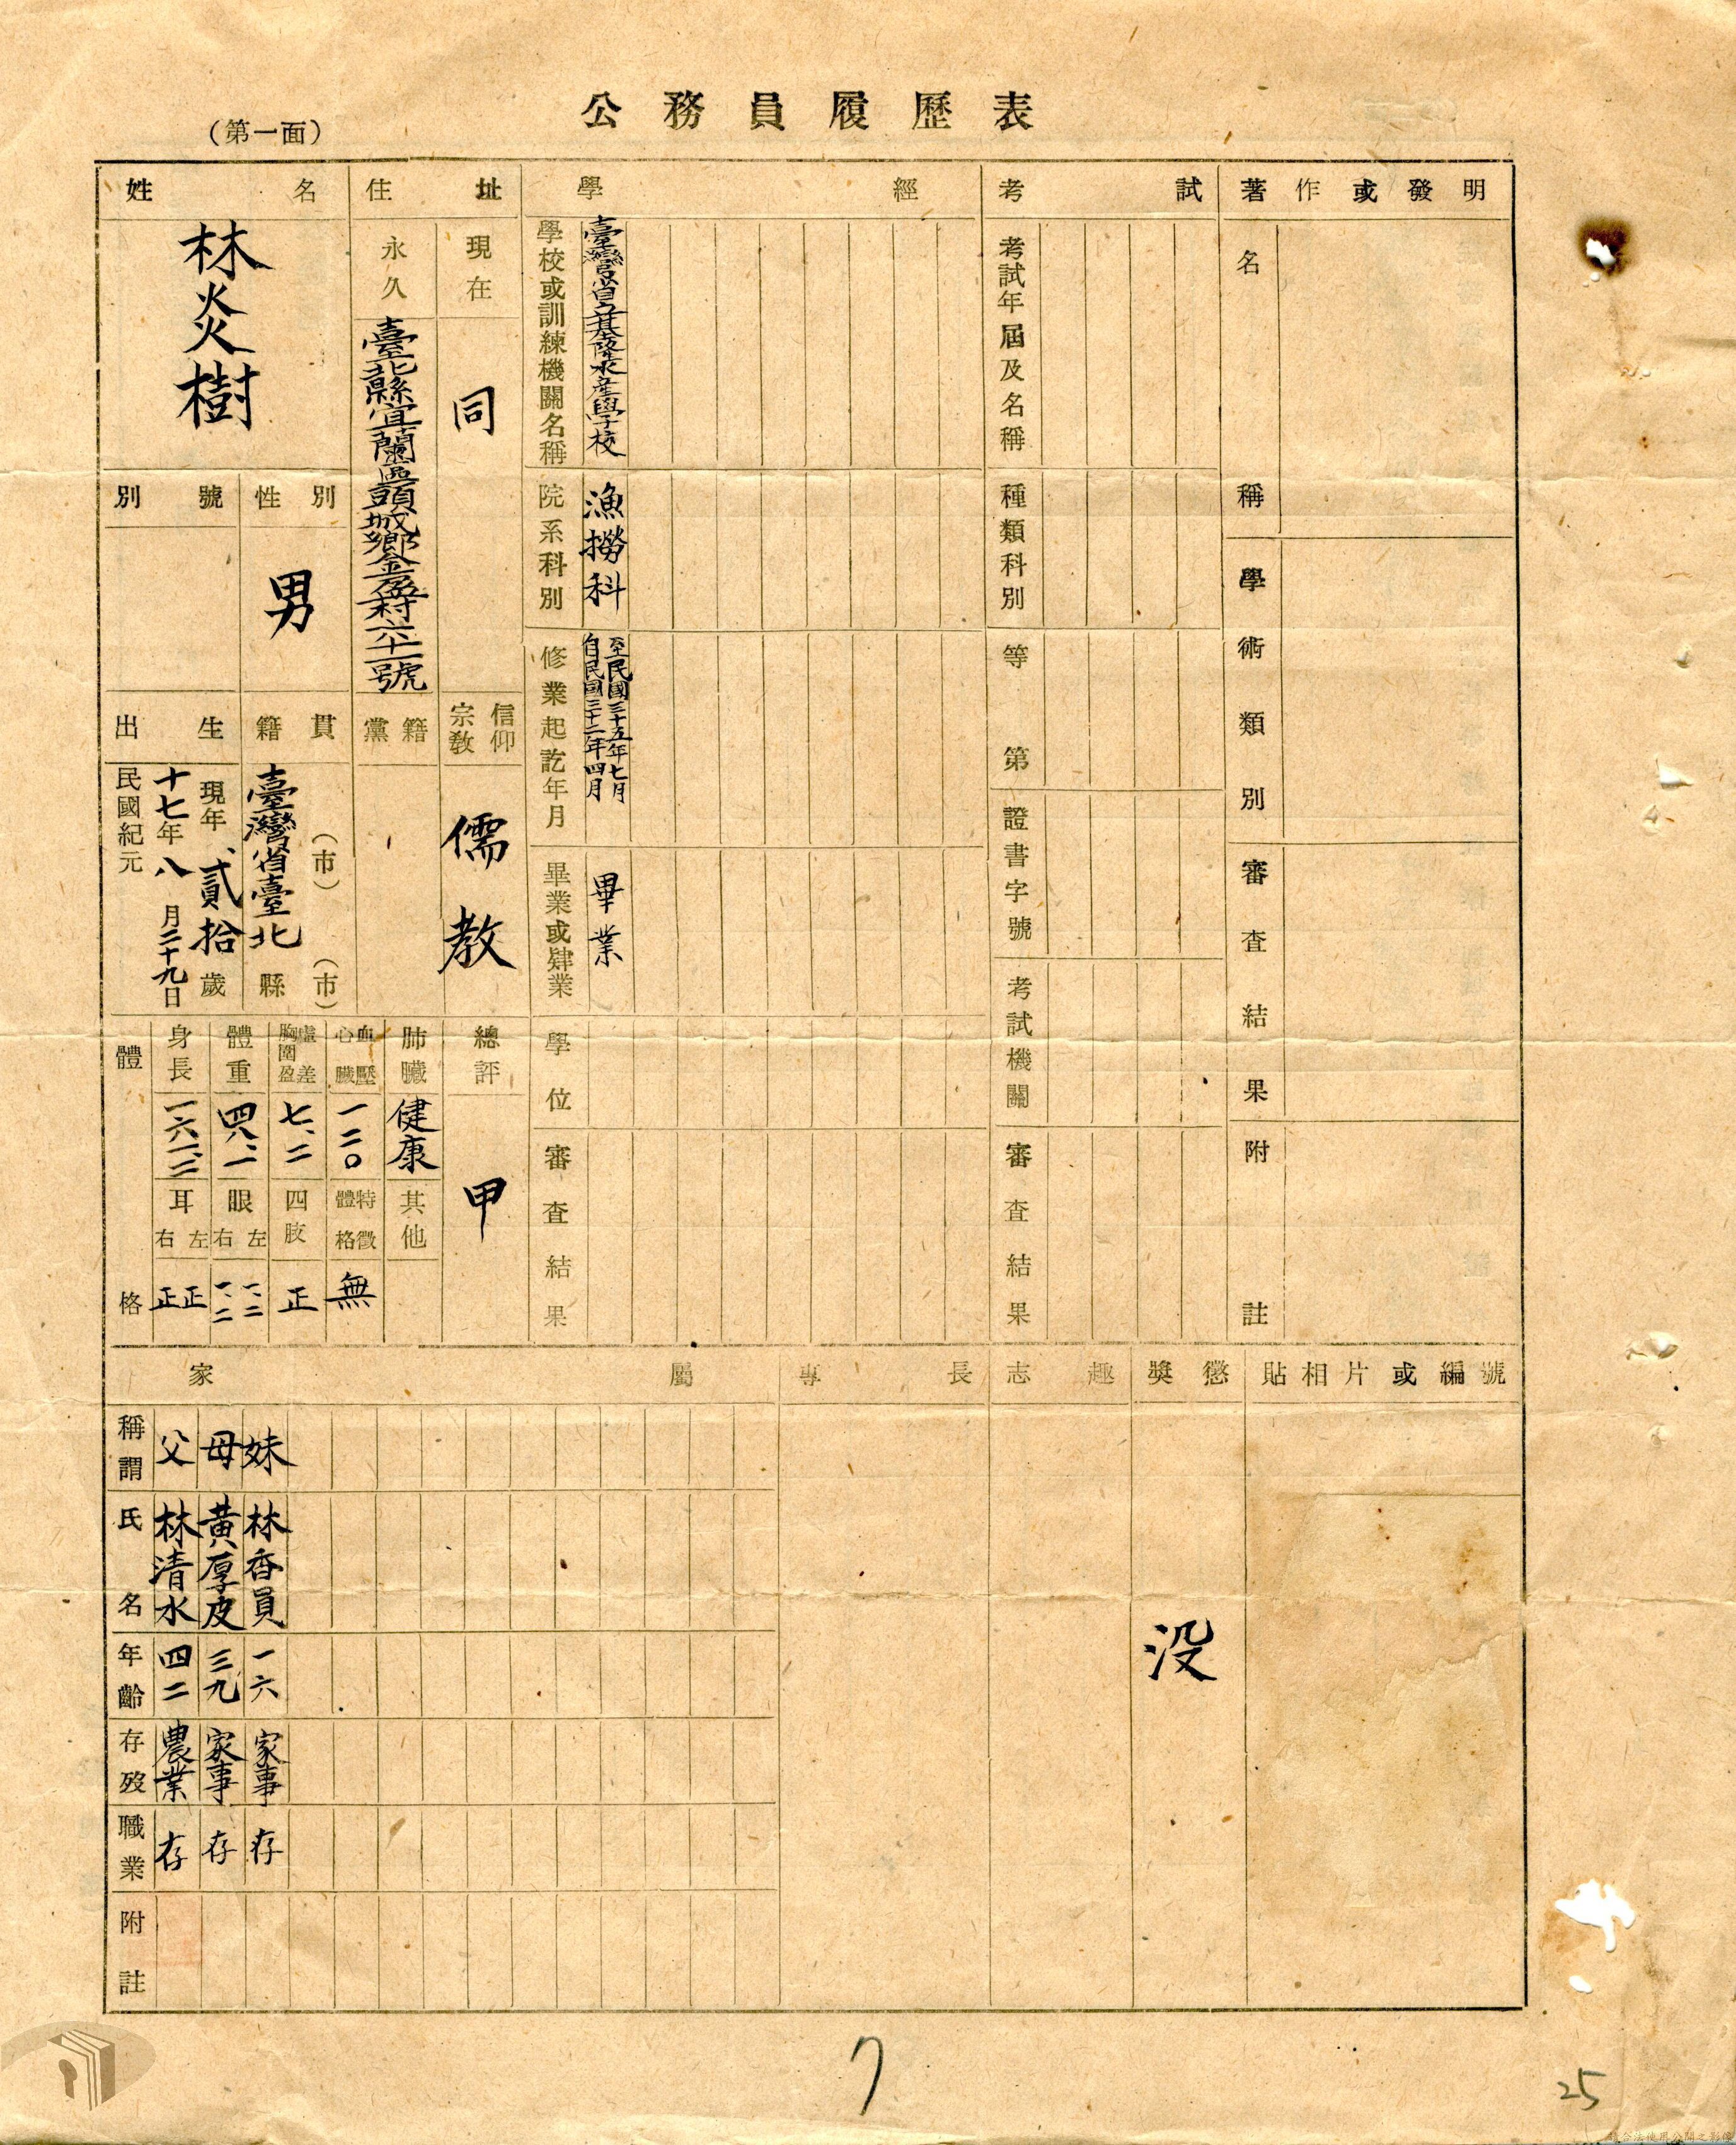 公務員履歷表
（第一面）
姓名
林炎樹
別號
性別
男
出生
民國紀元
十七年八月二十九日
現年
貳拾歲
籍貫
臺灣省（市）
臺北縣（市）
住址
永久
臺北縣宜蘭區頭城鄉金盈村六十一號
現在
同
黨籍
信仰宗教
儒教
體格
身長
一六一.三
體重
四八.一
胸圍盈虛差
七.二
心臟血壓
一二〇
肺臟
健康
總評
甲
耳
右 左
正 正
眼
右 左
一.二 一.二
四肢
正
體格特徵
無
其他
學經
學校或訓練機關名稱
臺灣省立基隆水產學校
院系科別
漁撈科
修業起訖年月
自民國三十二年四月
至民國三十五年七月
畢業或肄業
畢業
學位
審查結果
考試
考試年屆及名稱
種類科別
等第
證書字號
考試機關
審查結果
著作或發明
名稱
學術類別
審查結果
附註
家屬
稱謂
父 母 妹
氏名
林清水 黃厚皮 林香員
年齡
四二 三九 一六
存歿
農業 家事 家事
職業
存 存 存
附註
專長
志趣
獎懲
沒
貼相片或編號
7
25